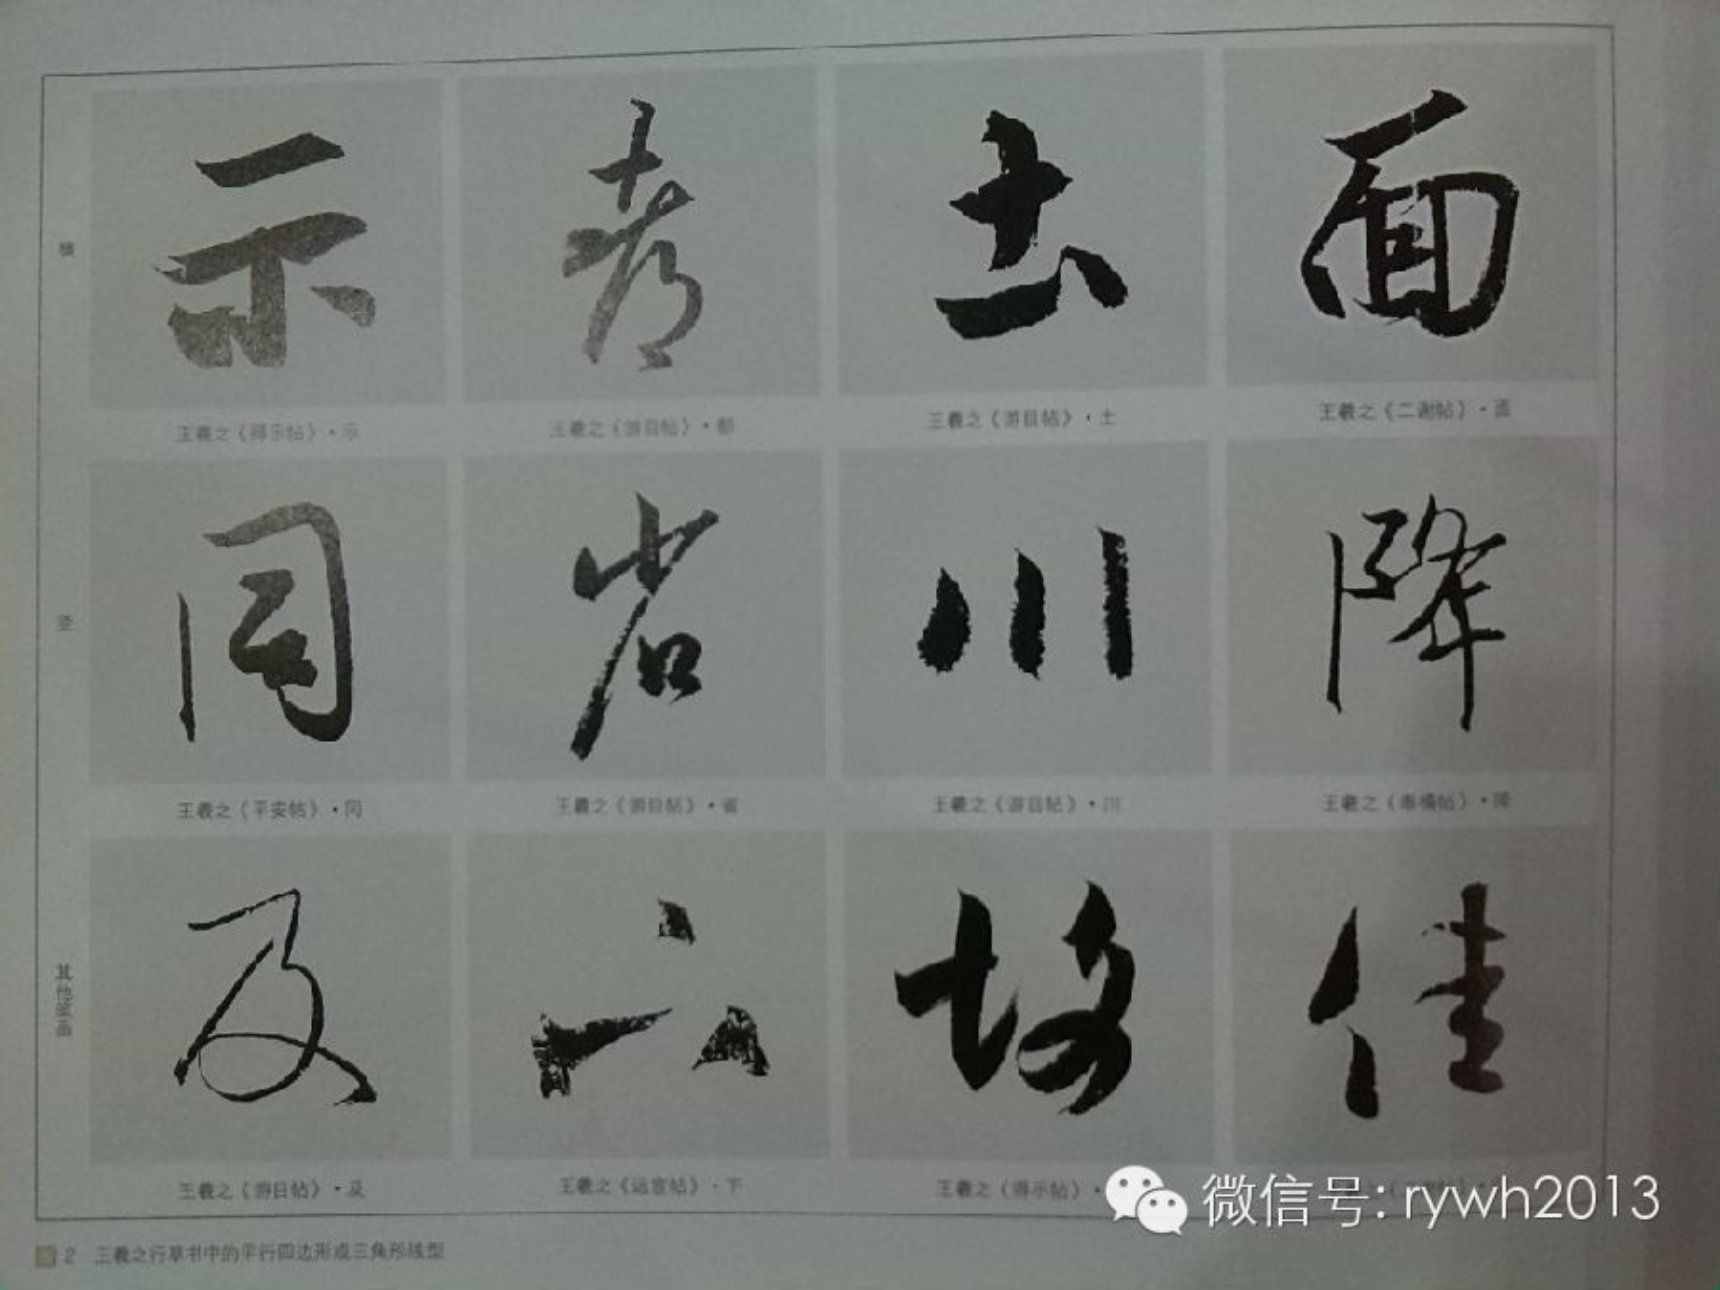 横
示 土 面
王羲之《得示帖》·示
王羲之《游目帖》·都
王羲之《游目帖》·土
王羲之《二谢帖》·面
竖
同 省 川 降
王羲之《平安帖》·同
王羲之《游目帖》·省
王羲之《游目帖》·川
王羲之《奉橘帖》·降
及 下 佳
王羲之《游目帖》·及
王羲之《远宦帖》·下
王羲之《得示帖》·
微信号: rywh2013
2 王羲之行草书中的平行四边形或三角形线型